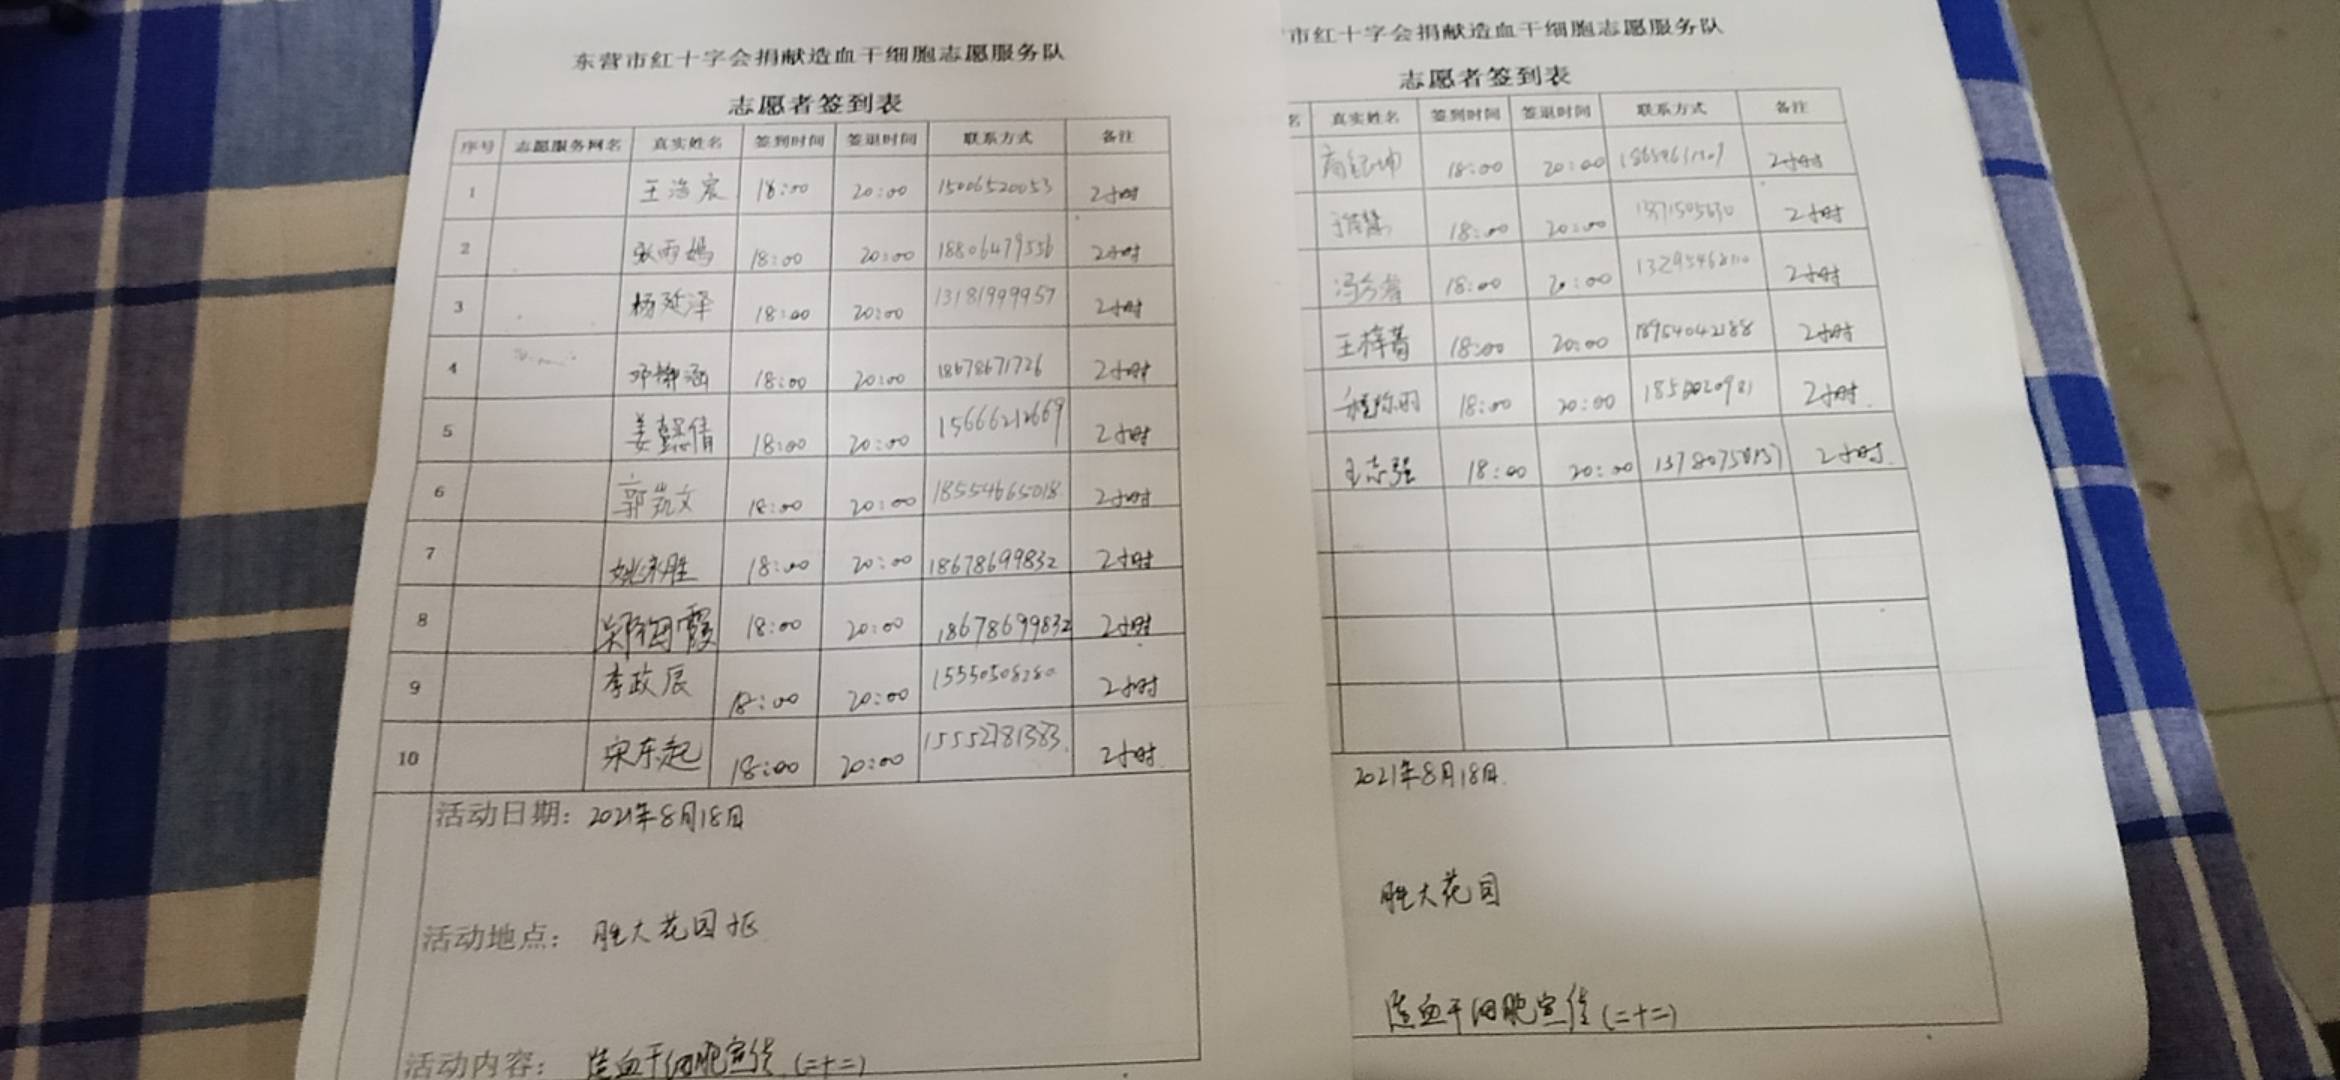 东营市红十字会捐献造血干细胞志愿服务队
志愿者签到表
序号 志愿服务网名 真实姓名 签到时间 签退时间 联系方式 备注
1 王浩宸 18:00 20:00 15006520053 2小时
2 张雨嫣 18:00 20:00 18806479556 2小时
3 杨延泽 18:00 20:00 13181999957 2小时
4 18:00 20:00 18678671726 2小时
5 姜懿倩 18:00 20:00 15666212669 2小时
6 郭凯文 18:00 20:00 18554665018 2小时
7 姚永胜 18:00 20:00 18678699832 2小时
8 郑海霞 18:00 20:00 18678699832 2小时
9 李政辰 18:00 20:00 15550508280 2小时
10 宋东起 18:00 20:00 15552781383 2小时
活动日期: 2021年8月18日
活动地点: 胜大花园
活动内容: 造血干细胞宣传(二十二)
市红十字会捐献造血干细胞志愿服务队
志愿者签到表
名 真实姓名 签到时间 签退时间 联系方式 备注
18:00 20:00 2小时
18:00 20:00 2小时
18:00 20:00 2小时
18:00 20:00 18954042188 2小时
18:00 20:00 2小时
王志强 18:00 20:00 2小时
2021年8月18日
胜大花园
造血干细胞宣传(二十二)